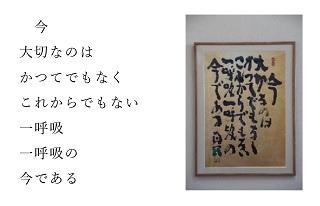 今
大切なのは
かつてでもなく
これからでもない
一呼吸
一呼吸の
今である
今
大切なのは
かつてでもなく
これからでもない
一呼吸一呼吸の
今である